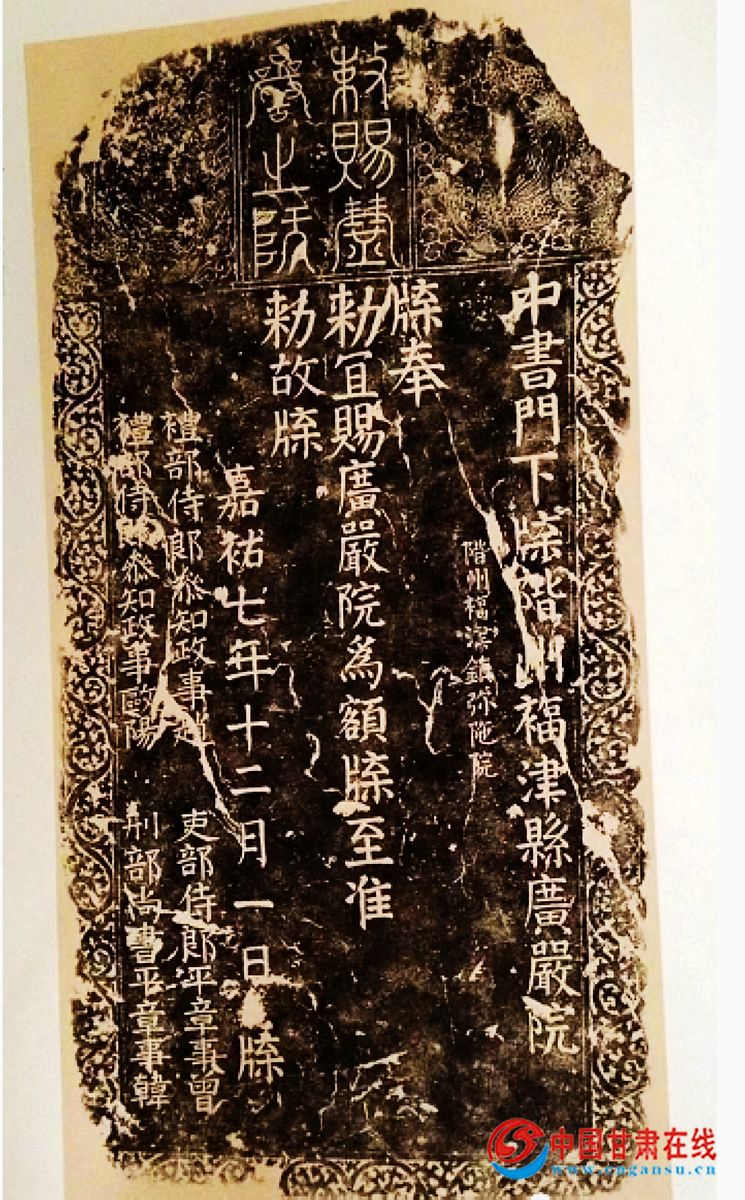 敕賜廣
嚴之院
中書門下牒階州福津縣廣嚴院
階州福津鎮弥陁院
牒奉
勑宜賜廣嚴院為額牒至准
勑故牒
嘉祐七年十二月一日牒
禮部侍郎叅知政事趙
吏部侍郎平章事曾
禮部侍郎叅知政事歐陽
刑部尚書平章事韓
中国甘肃在线
www.cngansu.cn